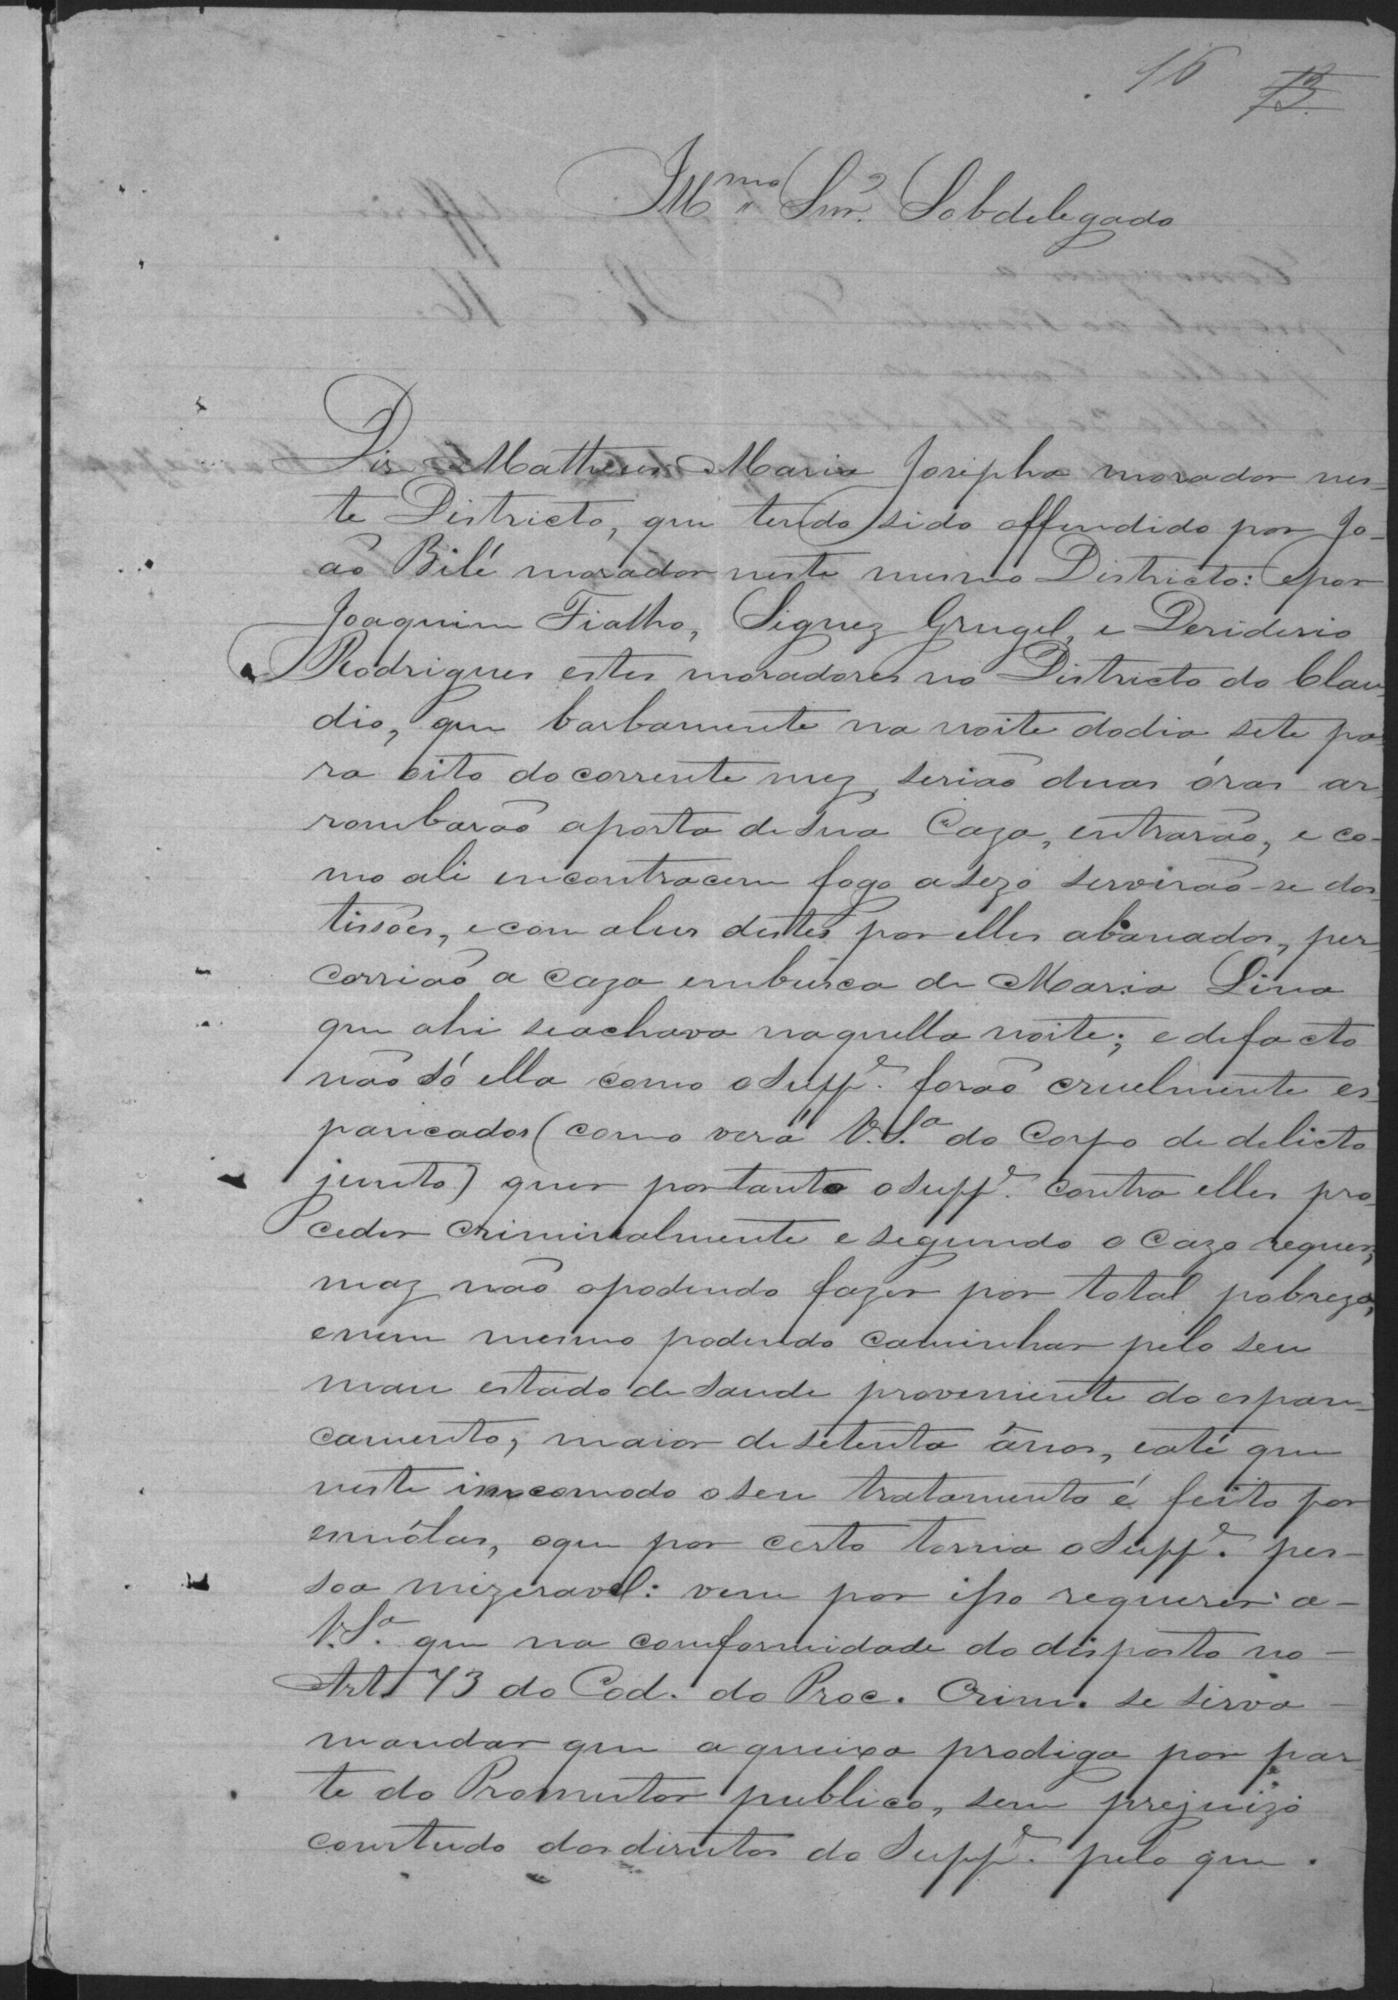 16 13
Illmo Snr. Sobdelegado
Dis Matheus Maria Josepha morador nes-
te Districto, que tendo sido offendido por Jo-
ão Bilé morador neste mesmo Districto: e por
Joaquim Fialho, Grugel, e Deziderio
Rodrigues estes moradores no Districto do Clau-
dio, que barbamente na noite do dia sete pa-
ra oito do corrente mez, serião duas óras ar-
rombarão a porta de sua Caza, entrarão, e co-
mo ali encontracem fogo asezo servirão-se dos
tissões, e com a lus destes por elles abanados, per-
corrião a caza embusca de Maria Lina
que ahi se achava naquella noite; e de facto
não só ella como o Suppe. forão cruelmente es-
pancados (como verá V.Sa. do Corpo de delicto
junto) quer portanto o Suppe. contra elles pro-
ceder criminalmente e segundo o cazo requer,
maz não o podendo fazer por total pobreza,
e nem mesmo podendo caminhar pelo seu
mau estado de saude proveniente do espan-
camento, maior de setenta ânos, e até que
neste incomodo o seu tratamento é feito por
esmólas, o que por certo torna o Suppe. pes-
soa mizeravel: vem por isso requerer a-
V.Sa. que na comformidade do disposto no-
Art. 73 do Cod. do Proc. Crim. se sirva-
mandar que a queixa prodiga por par-
te do Promutor publico, sem prejuizo
comtudo dos direitos do Suppe. pelo que.